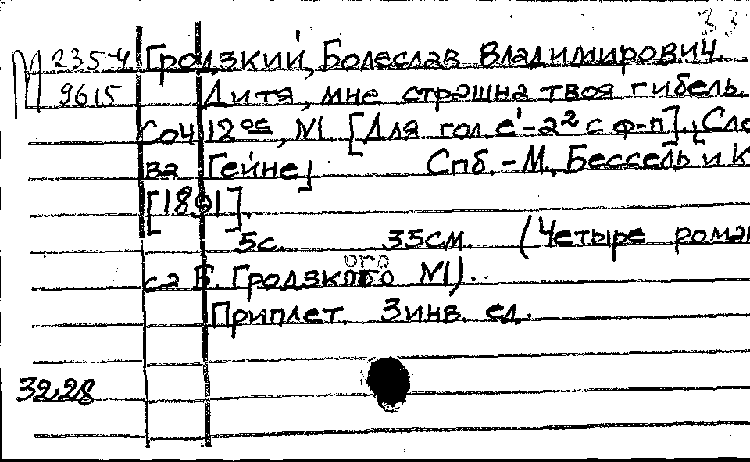 33
М 235-4 Гродзкий, Болеслав Владимирович.
9615 Дитя, мне страшна твоя гибель.
Соч. 12 ое, N1. [Для гол. e'-a2 с ф-п]., [Сло
ва Гейне] Спб. - М., Бессель и К
[1891].
5с. 35см. (Четыре роман
са Б. Гродзкого N1).
Приплет. 3 инв. ед.
3228